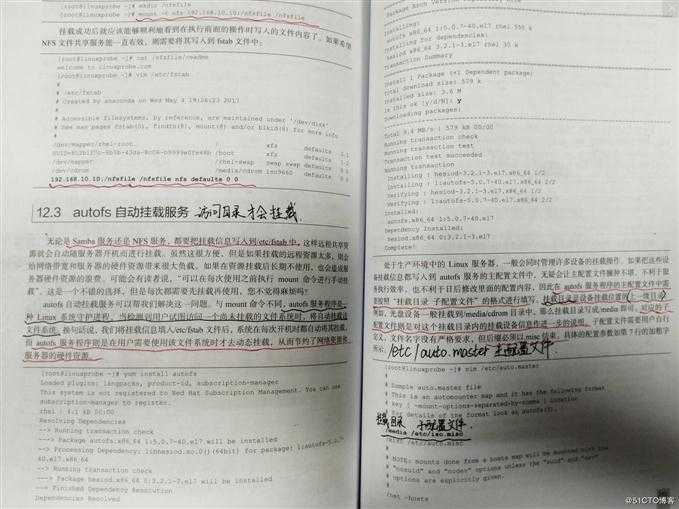 [root@linuxprobe ~]# mkdir /nfsfile
[root@linuxprobe ~]# mount -t nfs 192.168.10.10:/nfsfile /nfsfile
挂载成功后就应该能够顺利地看到在执行前面的操作时写入的文件内容了。如果希望
NFS 文件共享服务能一直有效，则需要将其写入到 fstab 文件中：
[root@linuxprobe ~]# cat /nfsfile/readme
welcome to linuxprobe.com
[root@linuxprobe ~]# vim /etc/fstab
#
# /etc/fstab
# Created by anaconda on Wed May 4 19:26:23 2017
#
# Accessible filesystems, by reference, are maintained under '/dev/disk'
# See man pages fstab(5), findfs(8), mount(8) and/or blkid(8) for more info
#
/dev/mapper/rhel-root / xfs defaults 1 1
/boot xfs defaults 1 2
/dev/mapper/rhel-swap swap swap defaults 0 0
/dev/cdrom /media/cdrom iso9660 defaults 0 0
192.168.10.10:/nfsfile /nfsfile nfs defaults 0 0
12.3 autofs 自动挂载服务 访问目录才会挂载
无论是 Samba 服务还是 NFS 服务，都要把挂载信息写入到/etc/fstab 中，这样远程共享资
源就会自动随服务器开机而进行挂载。虽然这很方便，但是如果挂载的远程资源太多，则会
给网络带宽和服务器的硬件资源带来很大负载。如果在资源挂载后长期不使用，也会造成服
务器硬件资源的浪费。可能会有读者说，“可以在每次使用之前执行 mount 命令进行手动挂
载”。这是一个不错的选择，但是每次都需要先挂载再使用，您不觉得麻烦吗？
autofs 自动挂载服务可以帮我们解决这一问题。与 mount 命令不同，autofs 服务程序是一
种 Linux 系统守护进程，当检测到用户试图访问一个尚未挂载的文件系统时，将自动挂载该
文件系统。换句话说，我们将挂载信息填入/etc/fstab 文件后，系统在每次开机时都自动将其挂载，
而 autofs 服务程序则是在用户需要使用该文件系统时才去动态挂载，从而节约了网络资源和
服务器的硬件资源。
[root@linuxprobe ~]# yum install autofs
Loaded plugins: langpacks, product-id, subscription-manager
This system is not registered to Red Hat Subscription Management. You can use
subscription-manager to register.
rhel | 4.1 kB 00:00
Resolving Dependencies
--> Running transaction check
---> Package autofs.x86_64 1:5.0.7-40.el7 will be installed
--> Processing Dependency: libhesiod.so.0()(64bit) for package: 1:autofs-5.0.7-
40.el7.x86_64
--> Running transaction check
---> Package hesiod.x86_64 0:3.2.1-3.el7 will be installed
--> Finished Dependency Resolution
Dependencies Resolved
Package Arch Version Repository Size
Installing:
autofs x86_64 1:5.0.7-40.el7 rhel 550 k
Installing for dependencies:
hesiod x86_64 3.2.1-3.el7 rhel 30 k
Transaction Summary
Install 1 Package (+1 Dependent package)
Total download size: 579 k
Installed size: 3.6 M
Is this ok [y/d/N]: y
Downloading packages:
Total 9.4 MB/s | 579 kB 00:00
Running transaction check
Running transaction test
Transaction test succeeded
Running transaction
Installing : hesiod-3.2.1-3.el7.x86_64 1/2
Installing : 1:autofs-5.0.7-40.el7.x86_64 2/2
Verifying : hesiod-3.2.1-3.el7.x86_64 1/2
Verifying : 1:autofs-5.0.7-40.el7.x86_64 2/2
Installed:
autofs.x86_64 1:5.0.7-40.el7
Dependency Installed:
hesiod.x86_64 0:3.2.1-3.el7
Complete!
处于生产环境中的 Linux 服务器，一般会同时管理许多设备的挂载操作。如果把这些设
备挂载信息都写入到 autofs 服务的主配置文件中，无疑会让主配置文件臃肿不堪，不利于服
务执行效率，也不利于日后修改里面的配置内容，因此在 autofs 服务程序的主配置文件中需
要按照“挂载目录 子配置文件”的格式进行填写。挂载目录是设备挂载位置的上一级目录。
例如，光盘设备一般挂载到/media/cdrom 目录中，那么挂载目录写成/media 即可。对应的子
配置文件则是对这个挂载目录内的挂载设备信息作进一步的说明。子配置文件需要用户自行
定义，文件名字没有严格要求，但后缀必须以.misc 结束。具体的配置参数如第 7 行的加粗字
所示。 /etc/auto.master 主配置文件
[root@linuxprobe ~]# vim /etc/auto.master
#
# Sample auto.master file
# This is an automounter map and it has the following format
# key [ -mount-options-separated-by-comma ] location
# For details of the format look at autofs(5).
#
挂载目录 子配置文件
/media /etc/iso.misc
/misc /etc/auto.misc
#
# NOTE: mounts done from a hosts map will be mounted with the
# "nosuid" and "nodev" options unless the "suid" and "dev"
# options are explicitly given.
#
/net -hosts
@51CTO博客